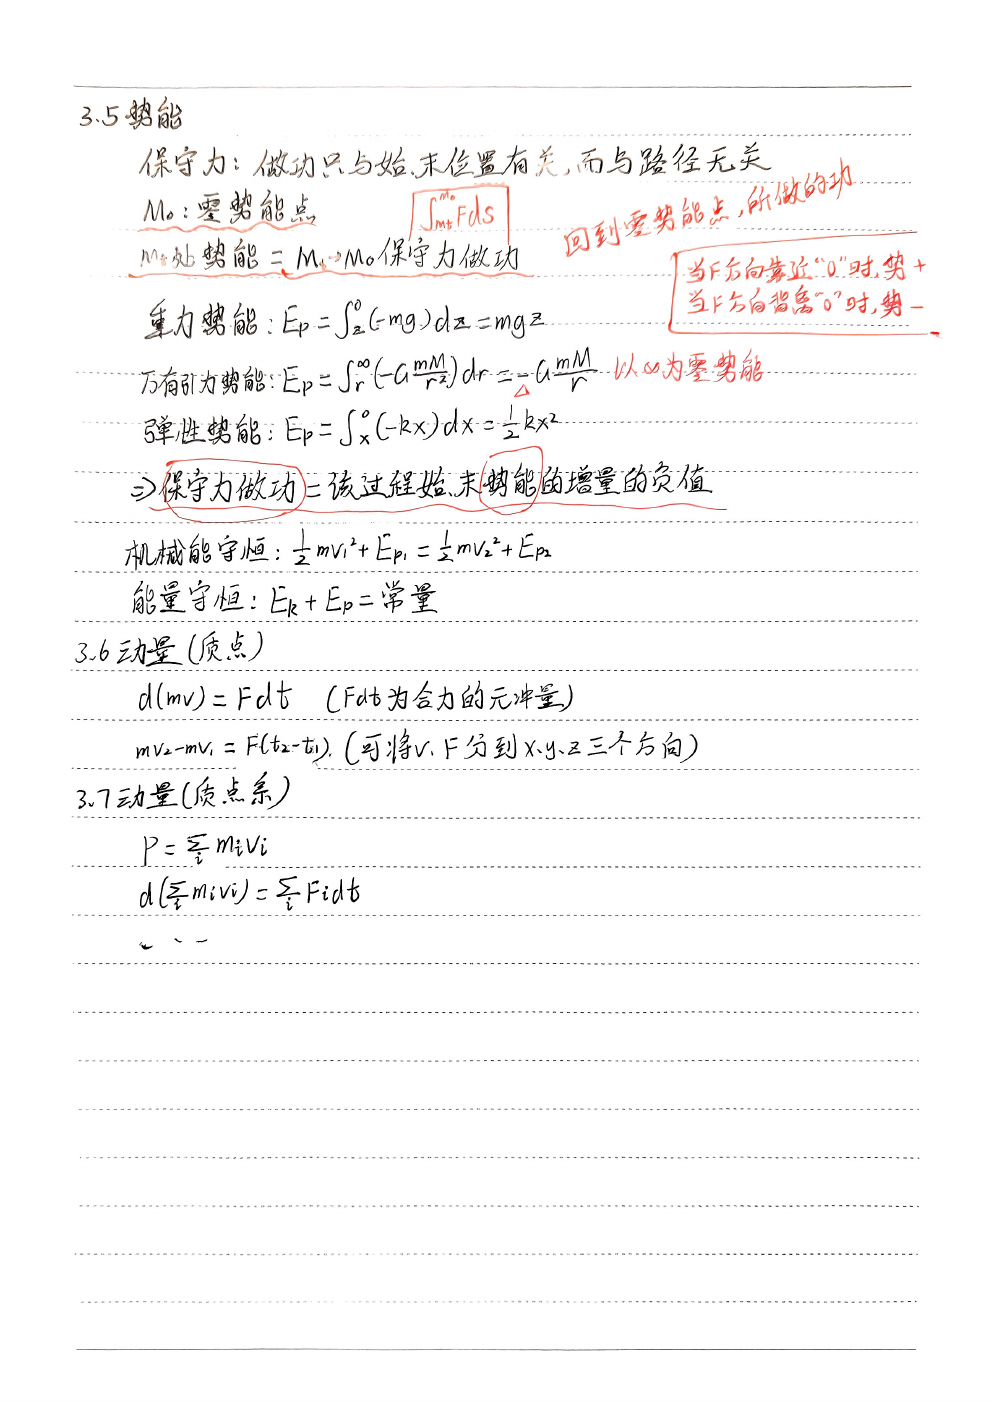 3.5 势能
保守力：做功只与始、末位置有关，而与路径无关
M₀：零势能点
∫_{Mt}^{M₀} Fds
回到零势能点，所做的功
处势能 = M → M₀ 保守力做功
当F方向靠近“0”时，势+
当F方向背离“0”时，势-
重力势能：Ep = ∫_z^0 (-mg)dz = mgz
万有引力势能：Ep = ∫_r^∞ (-G mM/r²)dr = -G mM/r 以∞为零势能
弹性势能：Ep = ∫_x^0 (-kx)dx = ½kx²
⇒ 保守力做功 = 该过程始、末势能的增量的负值
机械能守恒：½mv₁² + Ep₁ = ½mv₂² + Ep₂
能量守恒：Ek + Ep = 常量
3.6 动量（质点）
d(mv) = Fdt （Fdt为合力的元冲量）
mv₂-mv₁ = F(t₂-t₁). （可将v、F分到x、y、z三个方向）
3.7 动量（质点系）
P = Σ_i mivi
d(Σ_i mivi) = Σ_i Fidt